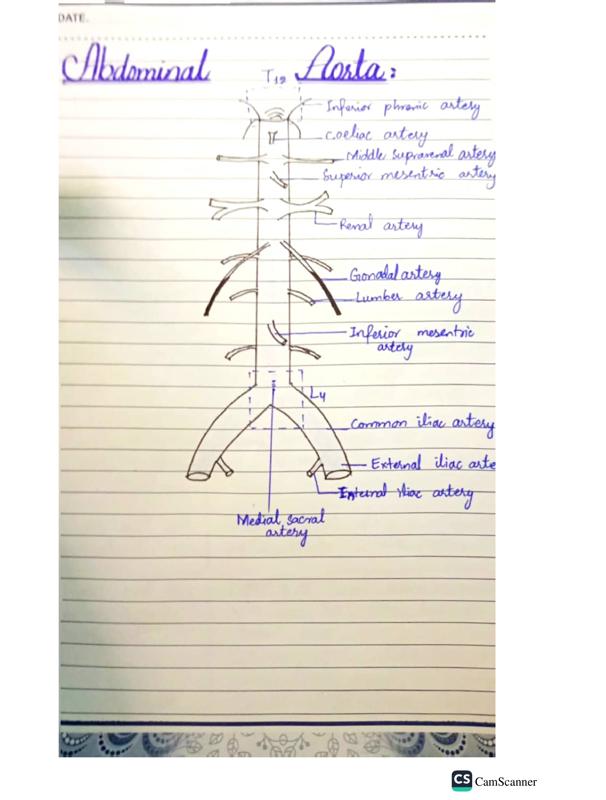 DATE.
Abdominal Aorta:
T12
Inferior phrenic artery
Coeliac artery
Middle Suprarenal artery
Superior mesentric artery
Renal artery
Gonadal artery
Lumber artery
Inferior mesentric
artery
L4
Common iliac artery
External iliac arte
Internal iliac artery
Medial sacral
artery
CS CamScanner